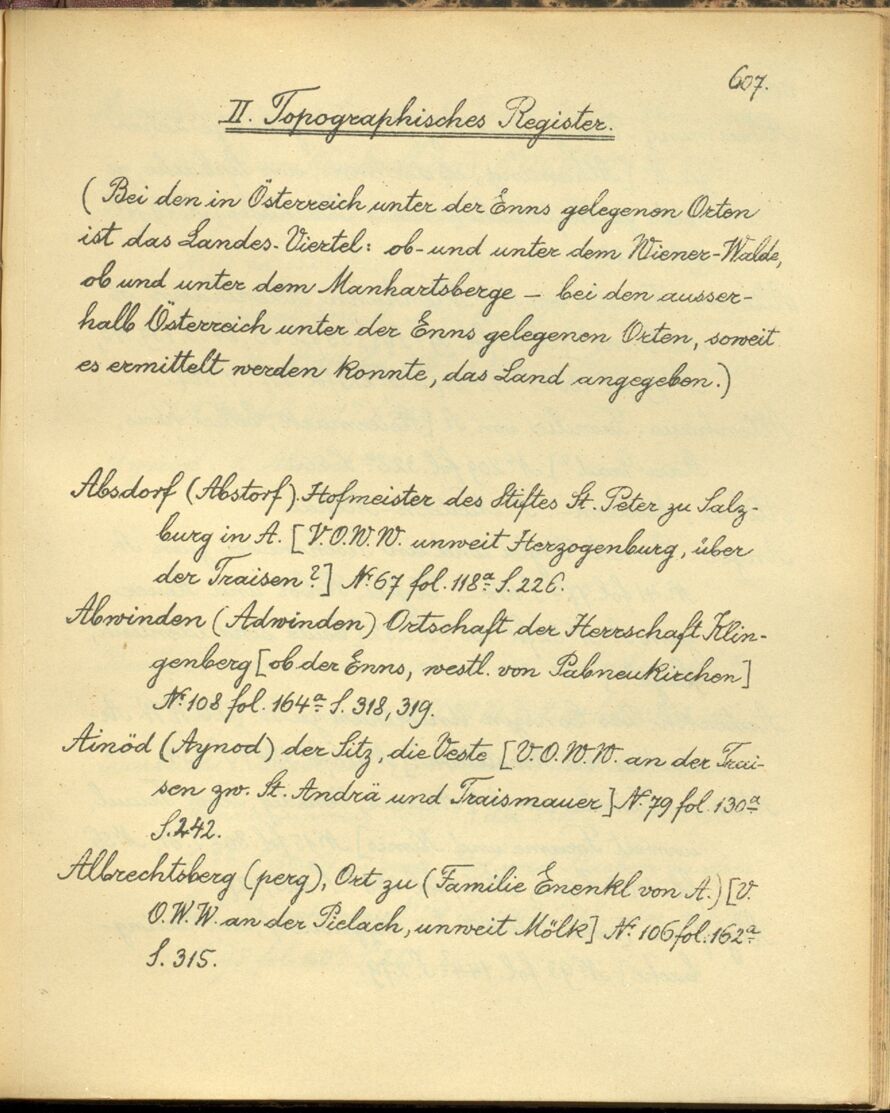 607.
II. Topographisches Register.
(Bei den in Österreich unter der Enns gelegenen Orten
ist das Landes-Viertel: ob- und unter dem Wiener-Walde,
ob und unter dem Manhartsberge – bei den ausser-
halb Österreich unter der Enns gelegenen Orten, soweit
es ermittelt werden konnte, das Land angegeben.)
Absdorf (Abstorf). Hofmeister des Stiftes St. Peter zu Salz-
burg in A. [V.O.W.W. unweit Herzogenburg, über
der Traisen?] № 67 fol. 118ª S. 226.
Abwinden (Adwinden) Ortschaft der Herrschaft Klin-
genberg [ob der Enns, westl. von Pabneukirchen]
№ 108 fol. 164ª S. 318, 319.
Ainöd (Aynod) der Sitz, die Veste [V.O.W.W. an der Trai-
sen zw. St. Andrä und Traismauer] № 79 fol. 130ª
S. 242.
Albrechtsberg (perg), Ort zu (Familie Enenkl von A.) [V.
O.W.W. an der Pielach, unweit Mölk] № 106 fol. 162ª
S. 315.